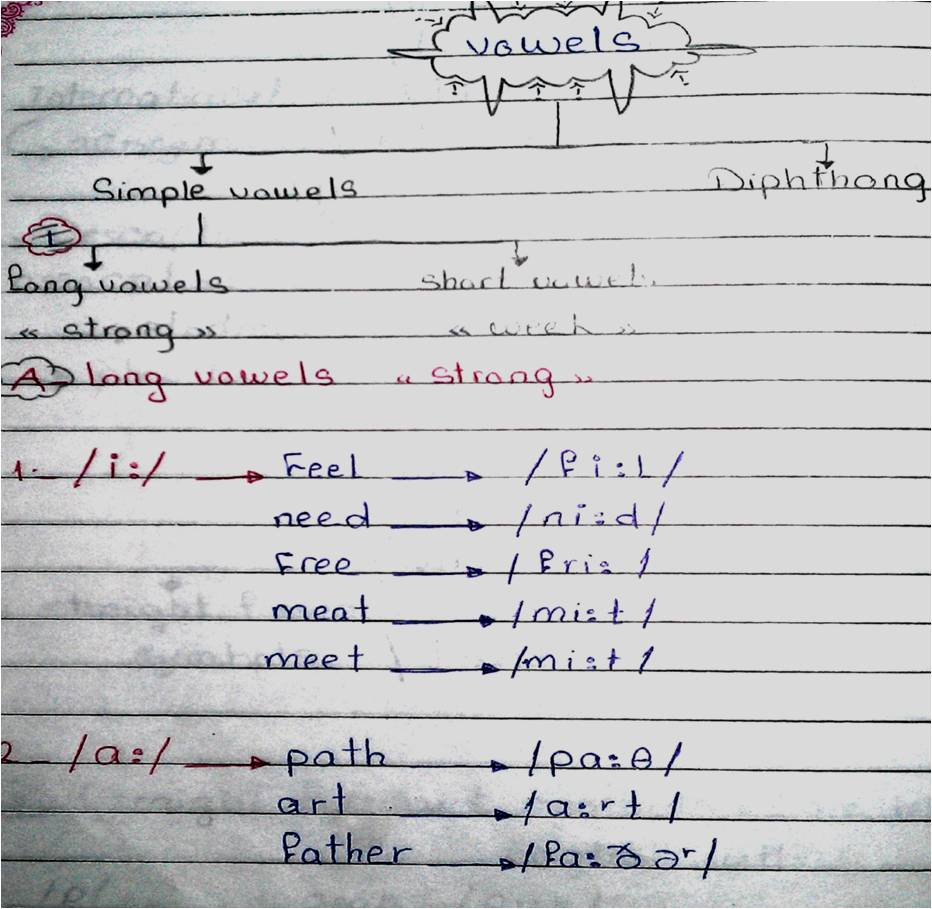 vowels
Simple vowels Diphthong
I
long vowels short vowel
« strong » « »
A) long vowels « strong »
1- /i:/ → Feel → /fi:l/
need → /ni:d/
Free → /fri:/
meat → /mi:t/
meet → /mi:t/
2- /a:/ → path → /pa:θ/
art → /a:rt/
father → /fa:ðəʳ/